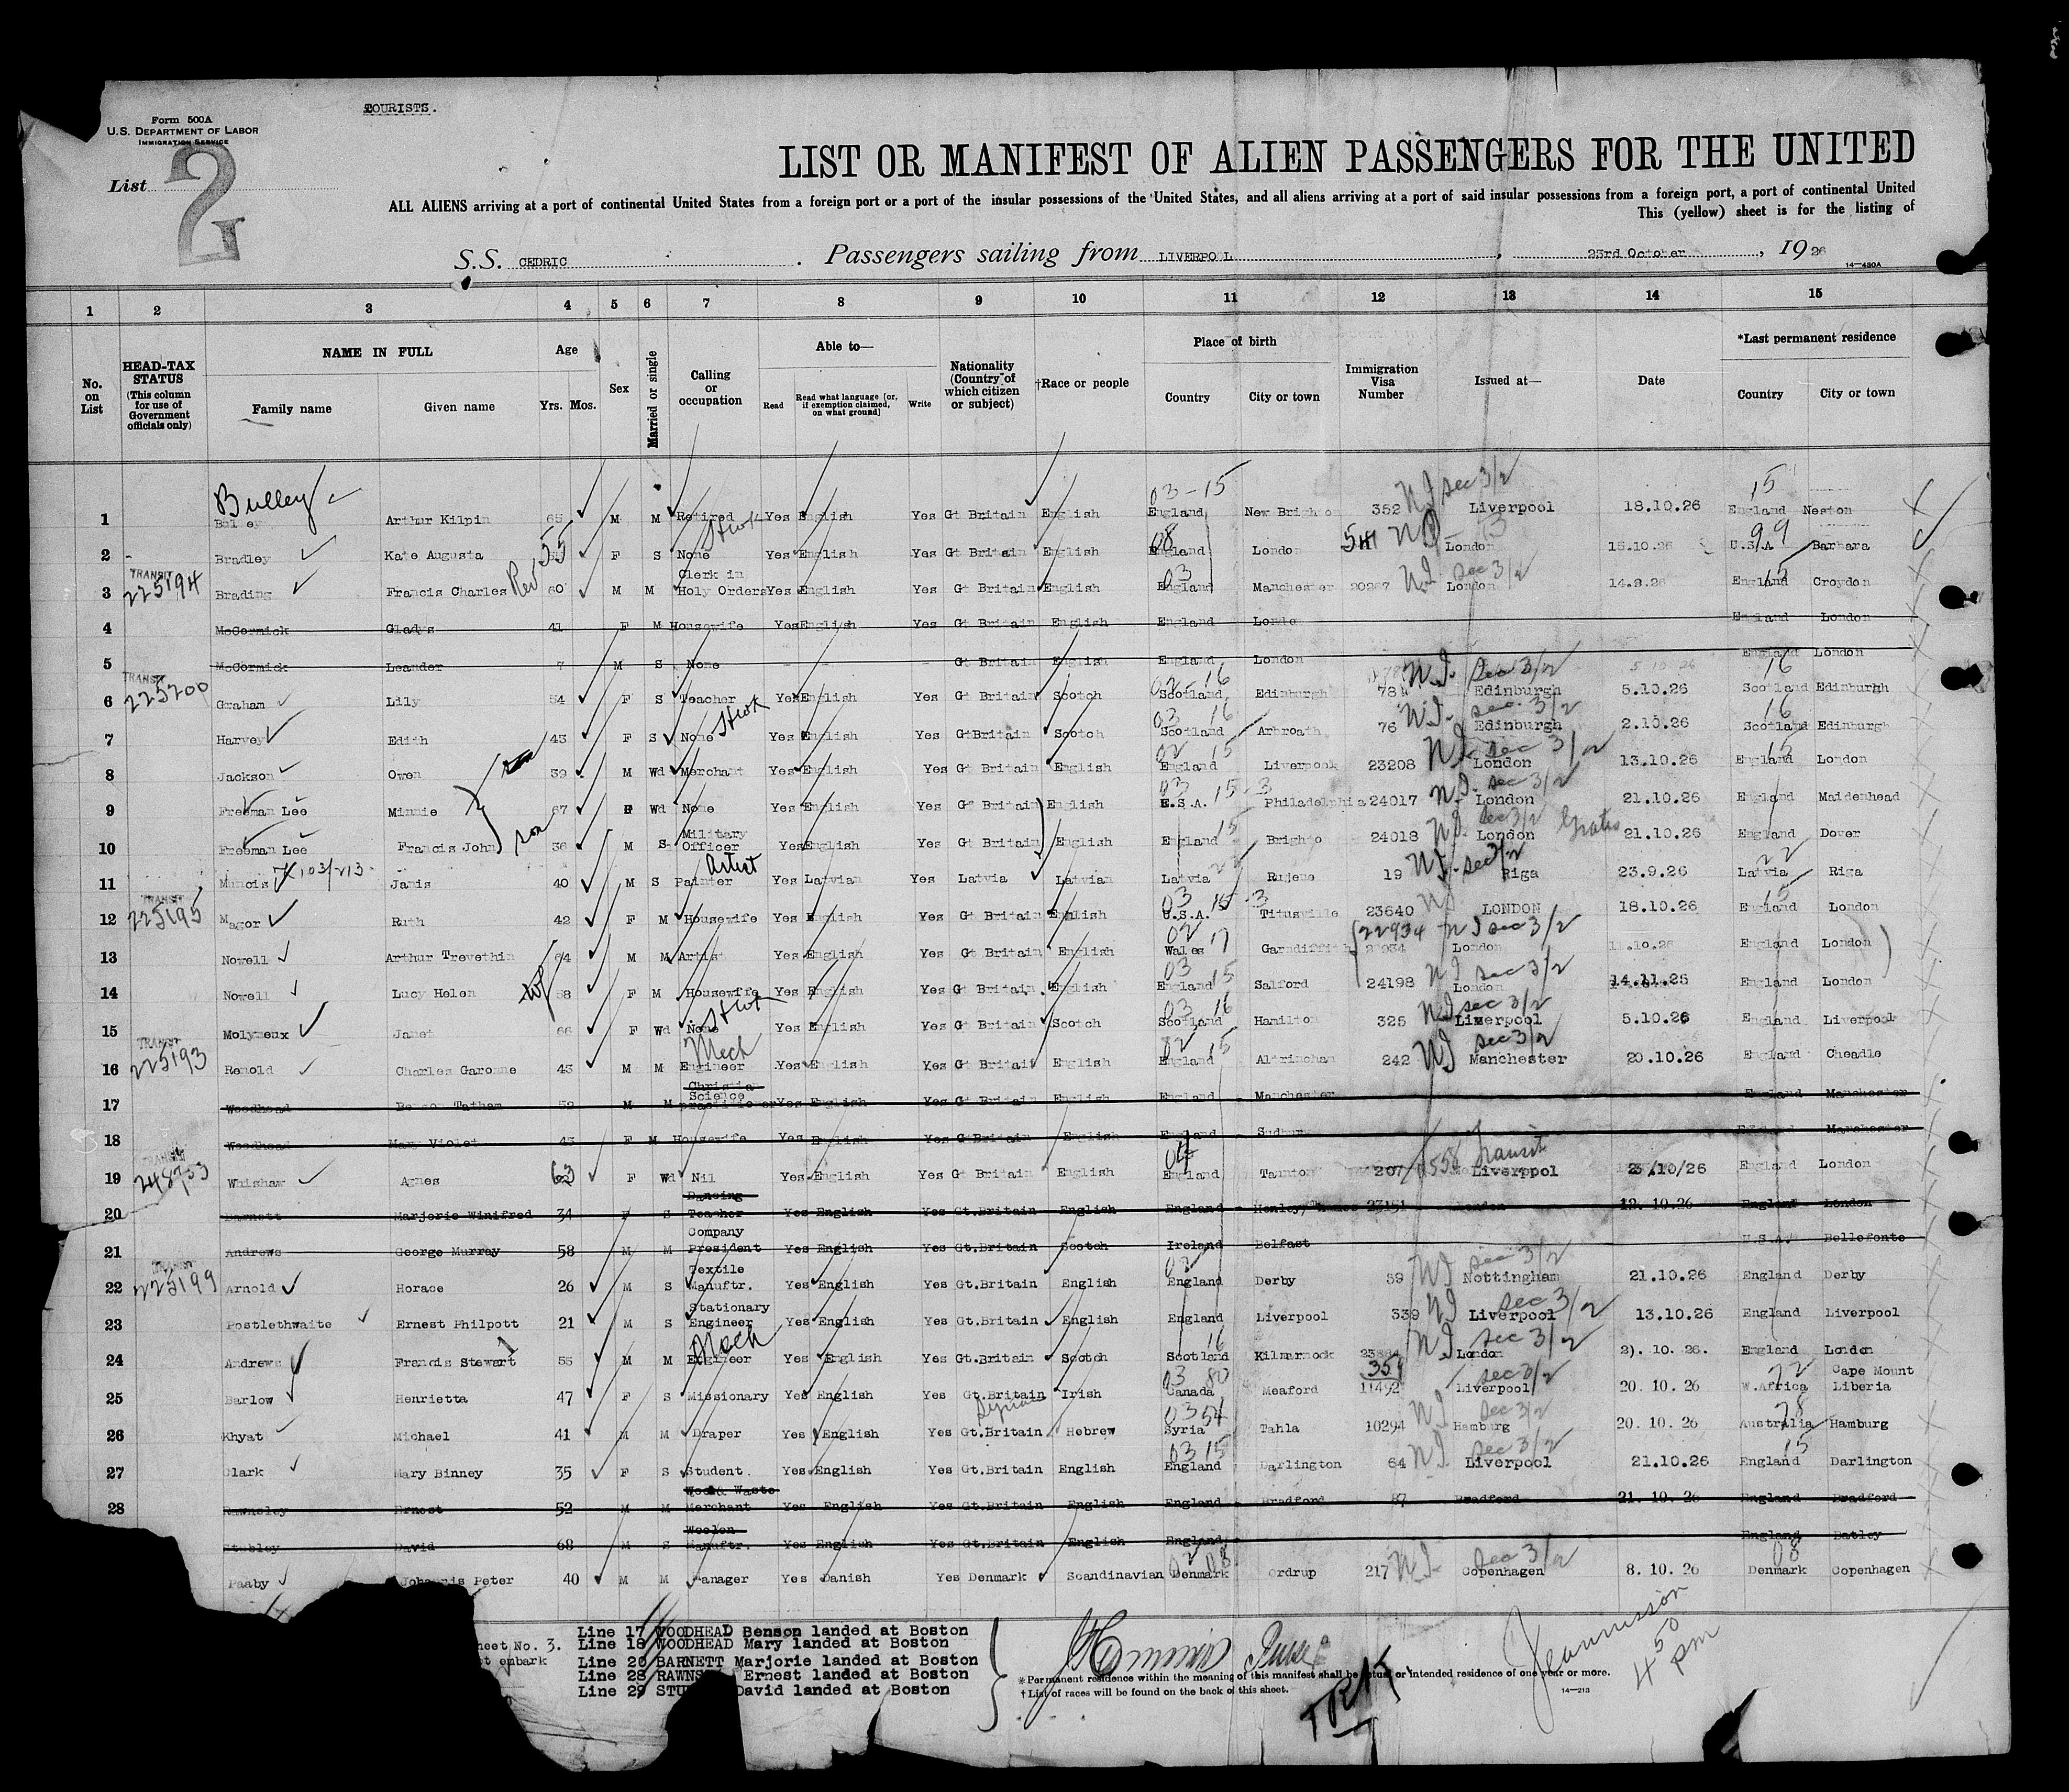 TOURISTS.
Form 500A
U.S. DEPARTMENT OF LABOR
IMMIGRATION SERVICE
List 2
LIST OR MANIFEST OF ALIEN PASSENGERS FOR THE UNITED
ALL ALIENS arriving at a port of continental United States from a foreign port or a port of the insular possessions of the United States, and all aliens arriving at a port of said insular possessions from a foreign port, a port of continental United
This (yellow) sheet is for the listing of
S.S. CEDRIC . Passengers sailing from LIVERPOOL , 23rd October , 19 26
14—430A
1 2 3 4 5 6 7 8 9 10 11 12 13 14 15
No. on List
HEAD-TAX STATUS (This column for use of Government officials only)
NAME IN FULL Family name Given name
Age Yrs. Mos.
Sex
Married or single
Calling or occupation
Able to— Read Read what language (or, if exemption claimed, on what ground) Write
Nationality (Country of which citizen or subject)
†Race or people
Place of birth Country City or town
Immigration Visa Number
Issued at—
Date
*Last permanent residence Country City or town
Bulley 03-15 NI sec 3/2 15
1 Arthur Kilpin 65 M M Retired Yes English Yes Gt Britain English England New Brighton 352 Liverpool 18.10.26 England Neston
2 Bradley Kate Augusta 55 F S None Yes English Yes Gt Britain English England London 541 London 15.10.26 U.S.A. Barbara
TRANSIT 225194
3 Brading Francis Charles 60 M M Clerk in Holy Orders Yes English Yes Gt Britain English England Manchester 20267 NI sec 3/2 London 14.9.26 England Croydon
4 McCormick Gladys 41 F M Housewife Yes English Yes Gt Britain English England London England London
5 McCormick Leander 7 M S None - - - Gt Britain English England London England London
TRANSIT 225200
6 Graham Lily 54 F S Teacher Yes English Yes Gt Britain Scotch Scotland Edinburgh 78 NI sec 3/2 Edinburgh 5.10.26 Scotland Edinburgh
7 Harvey Edith 43 F S None Yes English Yes GtBritain Scotch Scotland Arbroath 76 NI sec. 3/2 Edinburgh 2.10.26 Scotland Edinburgh
8 Jackson Owen 39 M Wd Merchant Yes English Yes Gt Britain English England Liverpool 23208 NI sec 3/2 London 13.10.26 England London
9 Freeman Lee Minnie 67 Wd None Yes English Yes Gt Britain English U.S.A. Philadelphia 24017 NI sec 3/2 London 21.10.26 England Maidenhead
10 Freeman Lee Francis John son 36 M S Military Officer Yes English Yes Gt Britain English England Brighto 24018 NI sec 3/2 London Gratis 21.10.26 England Dover
11 Muncis Janis 40 M S Painter Artist Yes Latvian Yes Latvia Latvian Latvia Rujene 19 NI sec 3/2 Riga 23.9.26 Latvia Riga
TRANSIT 225195
12 Magor Ruth 42 F M Housewife Yes English Yes Gt Britain English U.S.A. Titusville 23640 LONDON 18.10.26 England London
13 Nowell Arthur Trevethin 64 M M Artist Yes English Yes Gt Britain English Wales Garndiffith 22934 NI sec 3/2 London England London
14 Nowell Lucy Helen wf 58 F M Housewife Yes English Yes Gt Britain English England Salford 24198 NI sec 3/2 London England London
15 Molyneux Janet 66 F Wd None Yes English Yes Gt Britain Scotch Scotland Hamilton 325 NI sec 3/2 Liverpool 5.10.26 England Liverpool
TRANSIT 225193
16 Renold Charles Garonne 43 M M Engineer Mech Yes English Yes Gt Britain English England Altrincham 242 NI sec 3/2 Manchester 20.10.26 England Cheadle
17 Woodhead Benson Tatham 52 M M Christian Science practitioner Yes English Yes Gt Britain English England Manchester England Manchester
18 Woodhead Mary Violet 43 F M Housewife Yes English Yes GtBritain English England Sudbury England Manchester
19 Whishaw Agnes 63 F Wd Nil Yes English Yes Gt Britain English England Taunton 207 Transit Liverpool England London
20 Barnett Marjorie Winifred 34 F S Dancing Teacher Yes English Yes Gt.Britain English England Henley/Thames 23151 London 12.10.26 England London
21 Andrews George Murray 58 M M Company President Yes English Yes Gt.Britain Scotch Ireland Belfast U.S.A. Bellefonte
TRANSIT 225199
22 Arnold Horace 26 M S Textile Manuftr. Yes English Yes Gt.Britain English England Derby 59 NI sec 3/2 Nottingham 21.10.26 England Derby
23 Postlethwaite Ernest Philpott 21 M S Stationary Engineer Yes English Yes Gt.Britain English England Liverpool 339 NI sec 3/2 Liverpool 13.10.26 England Liverpool
24 Andrews Francis Stewart 55 M M Engineer Mech Yes English Yes Gt.Britain Scotch Scotland Kilmarnock NI sec 3/2 London 2). 10. 26. England London
25 Barlow Henrietta 47 F S Missionary Yes English Yes Gt.Britain Irish Canada Meaford 11492 sec 3/2 Liverpool 20. 10. 26 W.Africa Cape Mount Liberia
26 Khyat Michael 41 M M Draper Yes English Yes Gt.Britain Hebrew Syria Tahla 10294 NI sec 3/2 Hamburg 20. 10. 26 Australia Hamburg
27 Clark Mary Binney 35 F S Student. Yes English Yes Gt.Britain English England Darlington 64 NI sec 3/2 Liverpool 21.10.26 England Darlington
28 Rawnsley Ernest 52 M M Waste Merchant Yes English Yes Gt.Britain English England Bradford 87 Bradford 21. 10. 26 England Bradford
David 68 M S Woolen Manuftr. Yes English Yes Gt.Britain English England England Batley
Paaby Peter 40 M M Manager Yes Danish Yes Denmark Scandinavian Denmark Ordrup 217 NI sec 3/2 Copenhagen 8. 10. 26 Denmark Copenhagen
Line 17 WOODHEAD Benson landed at Boston
heet No. 3. Line 18 WOODHEAD Mary landed at Boston
ot embark Line 20 BARNETT Marjorie landed at Boston
Line 28 RAWNS Ernest landed at Boston
Line 29 STU David landed at Boston
* Permanent residence within the meaning of this manifest shall be actual or intended residence of one year or more.
† List of races will be found on the back of this sheet.
14—213
4 50 pm